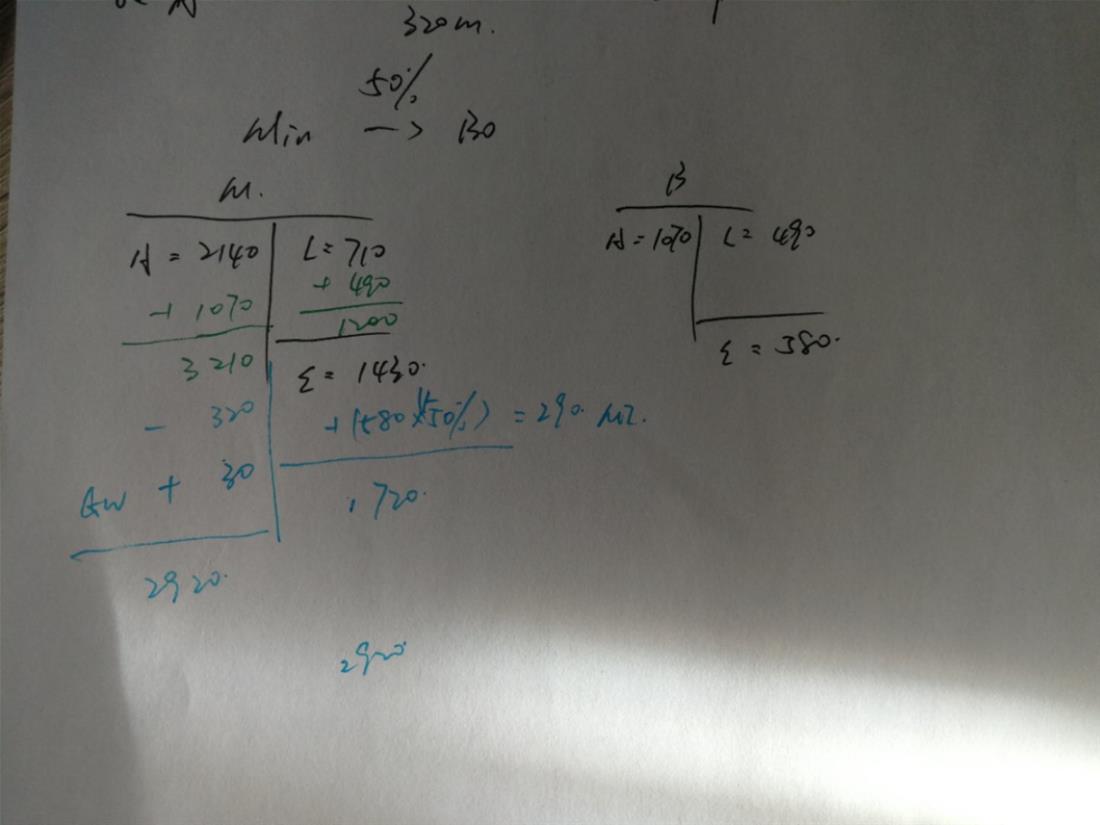 320m.
50%
Min → Bo
M.
A = 2140 L = 710
+ 1070 + 490
1200
3210 E = 1430.
- 320 + (580 x 50%) = 290. MI.
GW + 30
1720.
2920.
2920
B
A = 1070 L = 490
E = 580.